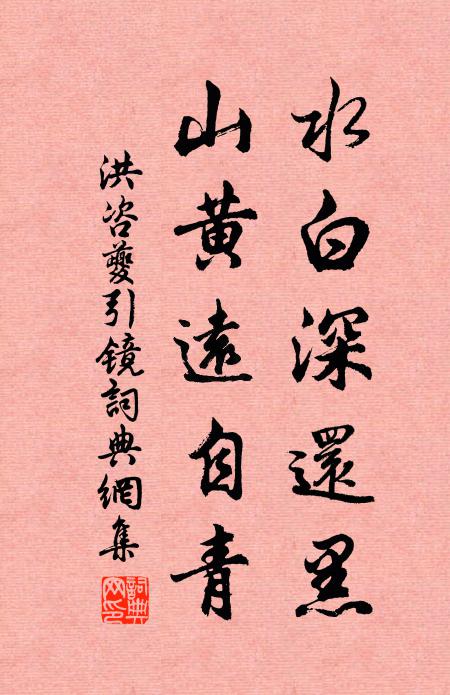 水白深還黑
山黃遠自青
洪咨夔引鏡詞典網集
詞典
网印